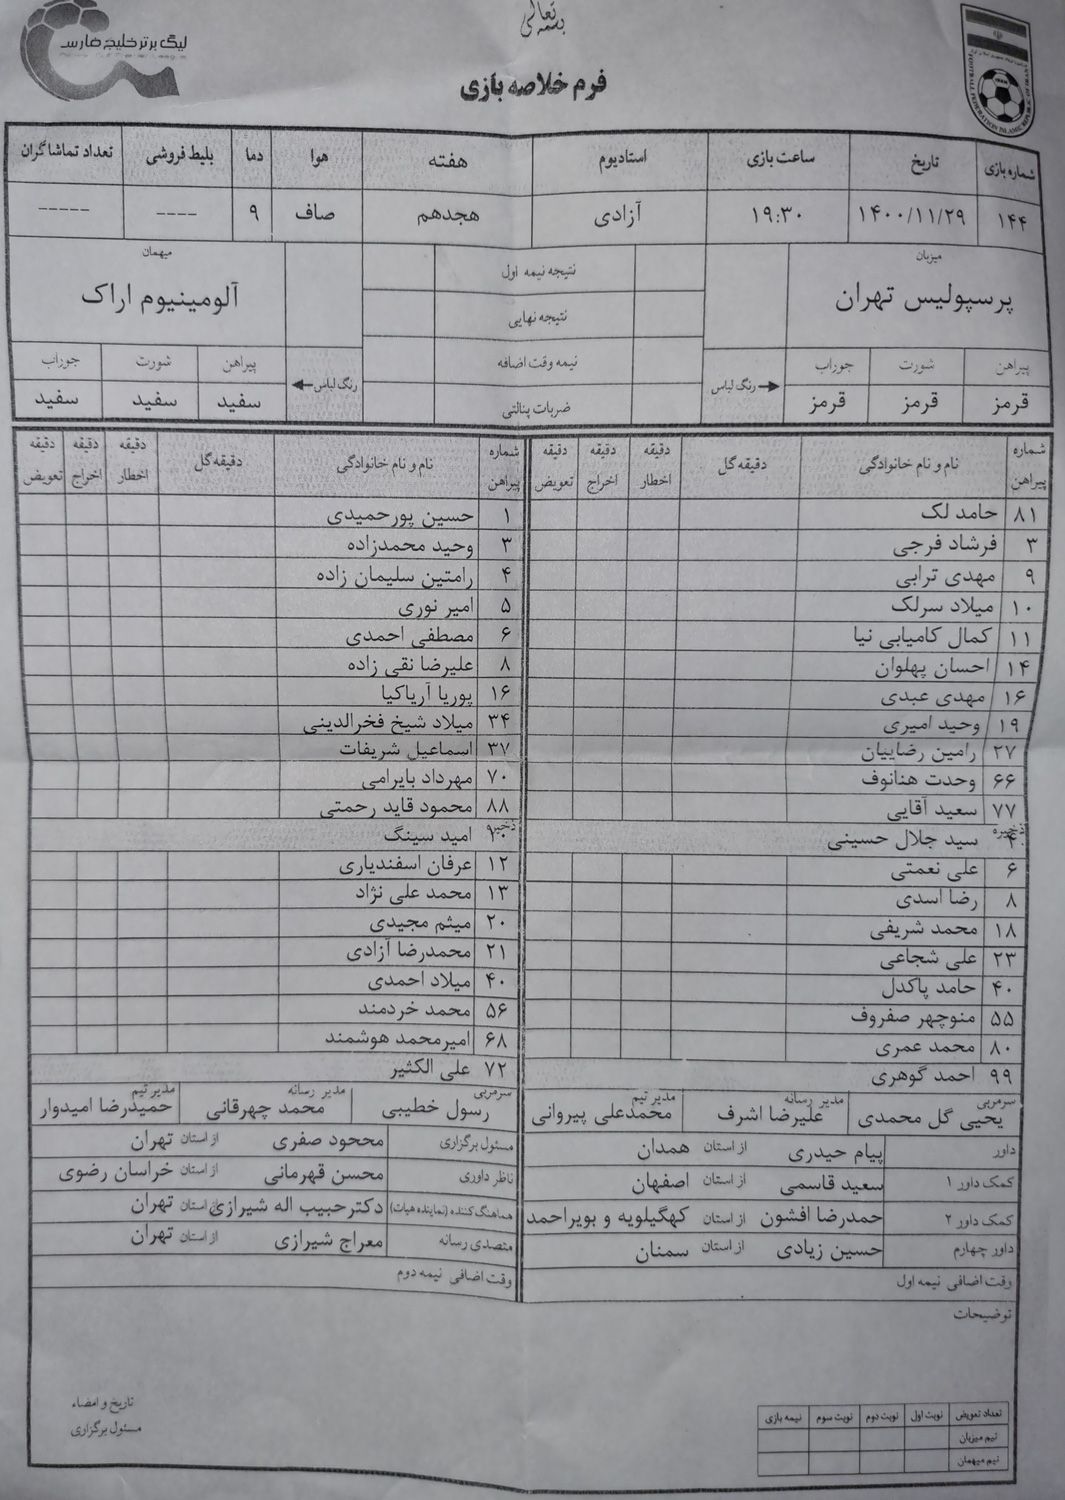 بسمه تعالی
لیگ برتر خلیج فارس
FOOTBALL FEDERATION ISLAMIC REPUBLIC OF IRAN
فرم خلاصه بازی
شماره بازی تاریخ ساعت بازی استادیوم هفته هوا دما بلیط فروشی تعداد تماشاگران
۱۴۴ ۱۴۰۰/۱۱/۲۹ ۱۹:۳۰ آزادی هجدهم صاف ۹ ---- -----
میزبان نتیجه نیمه اول میهمان
پرسپولیس تهران نتیجه نهایی آلومینیوم اراک
پیراهن شورت جوراب رنگ لباس نیمه وقت اضافه رنگ لباس پیراهن شورت جوراب
قرمز قرمز قرمز ضربات پنالتی سفید سفید سفید
شماره پیراهن نام و نام خانوادگی دقیقه گل دقیقه اخطار دقیقه اخراج دقیقه تعویض شماره پیراهن نام و نام خانوادگی دقیقه گل دقیقه اخطار دقیقه اخراج دقیقه تعویض
۸۱ حامد لک ۱ حسین پورحمیدی
۳ فرشاد فرجی ۳ وحید محمدزاده
۹ مهدی ترابی ۴ رامتین سلیمان زاده
۱۰ میلاد سرلک ۵ امیر نوری
۱۱ کمال کامیابی نیا ۶ مصطفی احمدی
۱۴ احسان پهلوان ۸ علیرضا نقی زاده
۱۶ مهدی عبدی ۱۶ پوریا آریاکیا
۱۹ وحید امیری ۳۴ میلاد شیخ فخرالدینی
۲۷ رامین رضاییان ۳۷ اسماعیل شریفات
۶۶ وحدت هنانوف ۷۰ مهرداد بایرامی
۷۷ سعید آقایی ۸۸ محمود قاید رحمتی
ذخیره ۴ سید جلال حسینی ذخیره امید سینگ
۶ علی نعمتی ۱۲ عرفان اسفندیاری
۸ رضا اسدی ۱۳ محمد علی نژاد
۱۸ محمد شریفی ۲۰ میثم مجیدی
۲۳ علی شجاعی ۲۱ محمدرضا آزادی
۴۰ حامد پاکدل ۴۰ میلاد احمدی
۵۵ منوچهر صفروف ۵۶ محمد خردمند
۸۰ محمد عمری ۶۸ امیرمحمد هوشمند
۹۹ احمد گوهری ۷۲ علی الکثیر
سرمربی یحیی گل محمدی مدیر رسانه علیرضا اشرف مدیر تیم محمدعلی پیروانی سرمربی رسول خطیبی مدیر رسانه محمد چهرقانی مدیر تیم حمیدرضا امیدوار
داور پیام حیدری از استان همدان مسئول برگزاری مححود صفری از استان تهران
کمک داور ۱ سعید قاسمی از استان اصفهان ناظر داوری محسن قهرمانی از استان خراسان رضوی
کمک داور ۲ حمدرضا افشون از استان کهگیلویه و بویراحمد هماهنگ کننده (نماینده هیات) دکترحبیب اله شیرازی از استان تهران
داور چهارم حسین زیادی از استان سمنان متصدی رسانه معراج شیرازی از استان تهران
وقت اضافی نیمه اول وقت اضافی نیمه دوم
توضیحات
تاریخ و امضاء
مسئول برگزاری
تعداد تعویض نوبت اول نوبت دوم نوبت سوم نیمه بازی
تیم میزبان
تیم میهمان